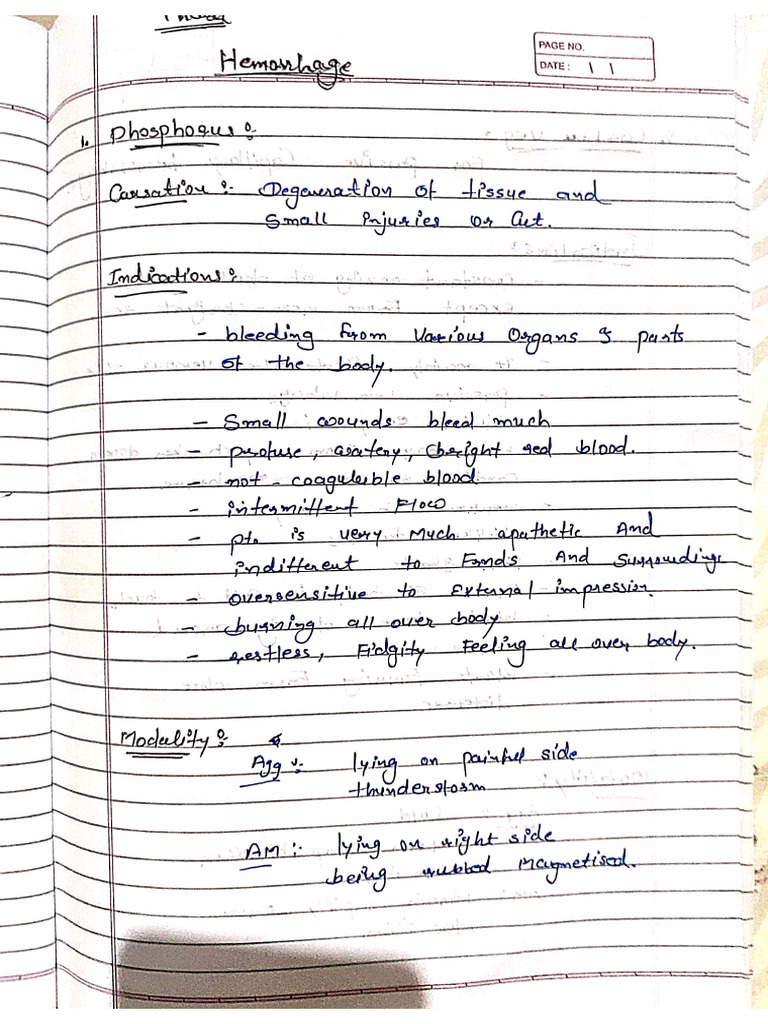 Hemorrhage
PAGE NO.
DATE: / /
1. Phosphorus :
Causation :- Degeneration of tissue and
Small Injuries or Cut.
Indications :
- bleeding from various Organs & parts
of the body.
- Small wounds bleed much
- profuse, watery, bright red blood.
- not-coaguleble blood
- intermittent Flow
- pt. is very Much apathetic And
indifferent to Fands And Surroundings
- oversensitive to External impression.
- burning all over body
- restless, Fidgity Feeling all over body.
Modality :
Agg :- lying on painful side
thunderstorm
AM :- lying on right side
being rubbed Magnetised.